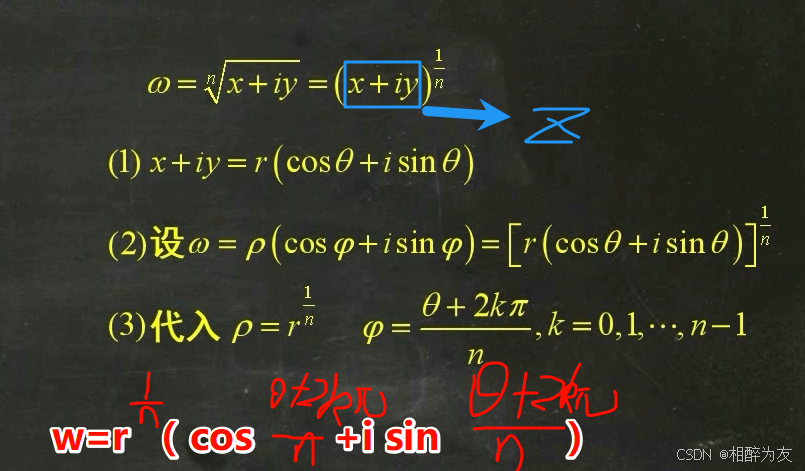 ω = ⁿ√(x+iy) = (x+iy)^(1/n)
Z
(1) x+iy = r(cosθ+i sinθ)
(2)设ω = ρ(cosφ+i sinφ) = [r(cosθ+i sinθ)]^(1/n)
(3)代入 ρ = r^(1/n) φ = (θ+2kπ)/n, k = 0,1,⋯,n−1
w=r^(1/n) ( cos (θ+2kπ)/n +i sin (θ+2kπ)/n )
CSDN @相醉为友